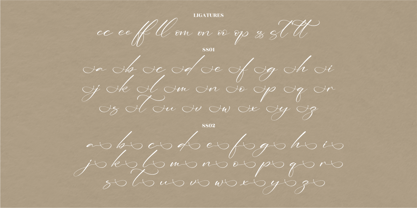 LIGATURES
cc ee ff ll om on ii op ss st tt
SS01
a b c d e f g h i
j k l m n o p q r
s t u v w x y z
SS02
a b c d e f g h i
j k l m n o p q r
s t u v w x y z